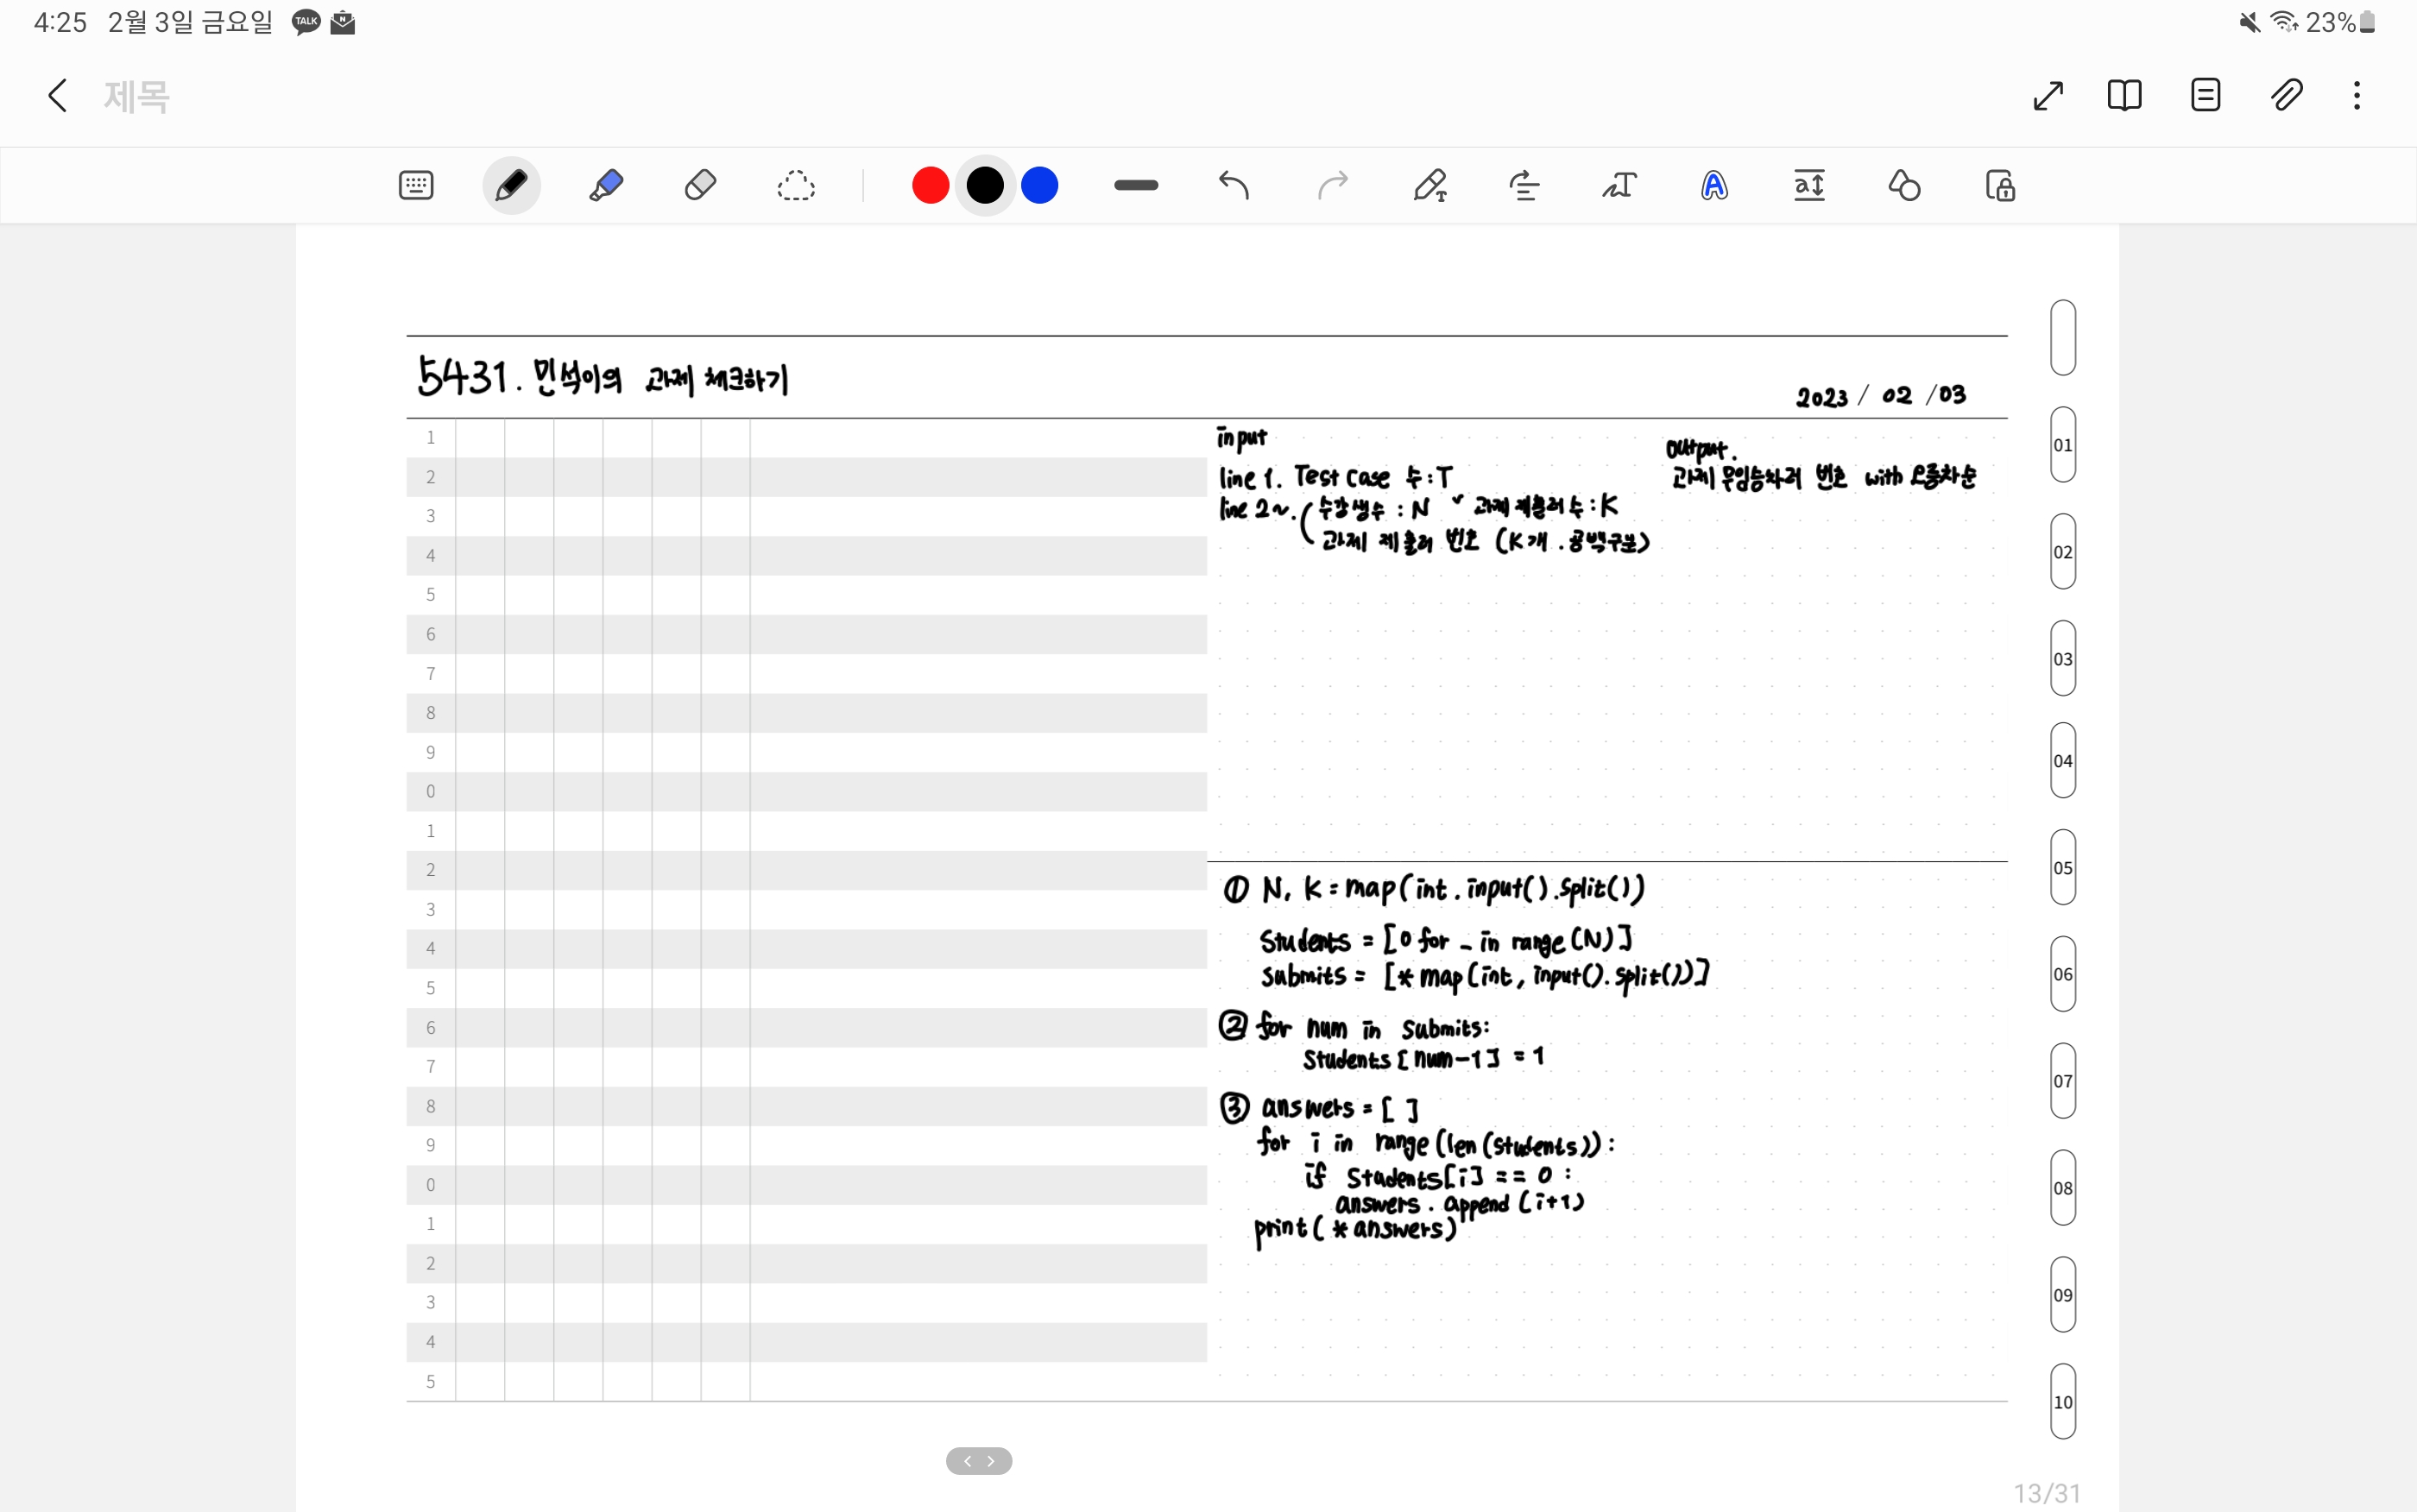 4:25 2월 3일 금요일 TALK N 23%
제목
5431. 민석이의 과제 체크하기
2023 / 02 / 03
1
2
3
4
5
6
7
8
9
0
1
2
3
4
5
6
7
8
9
0
1
2
3
4
5
input
line 1. Test case 수 : T
line 2~. ( 수강생수 : N ˅ 과제 제출러 수 : K
과제 제출러 번호 (K개 . 공백구분)
output.
과제 무임승차러 번호 with 오름차순
① N, K = map(int. input().split())
students = [0 for _ in range(N)]
submits = [*map(int, input().split())]
② for num in submits:
students[num-1] = 1
③ answers = [ ]
for i in range(len(students)):
if students[i] == 0 :
answers. append(i+1)
print(*answers)
01
02
03
04
05
06
07
08
09
10
13/31